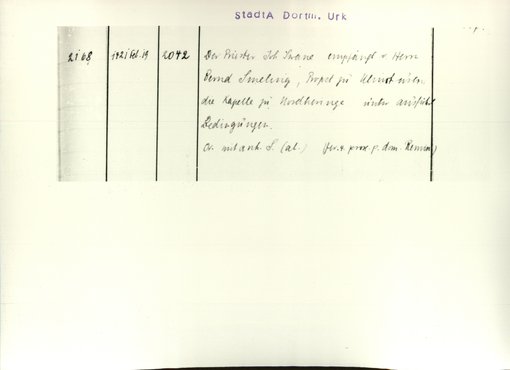 StadtA Dortm. Urk
2168 1421 Feb. 19 2042 Der Priester Joh Swane empfängt v. Herrn
Bernd Smeling, Propst zu
die Kapelle zu Nordheringe unter ausführl
Bedingungen.
Or. mit anh. S. (ab.) fer. 4. prox. p. dom.